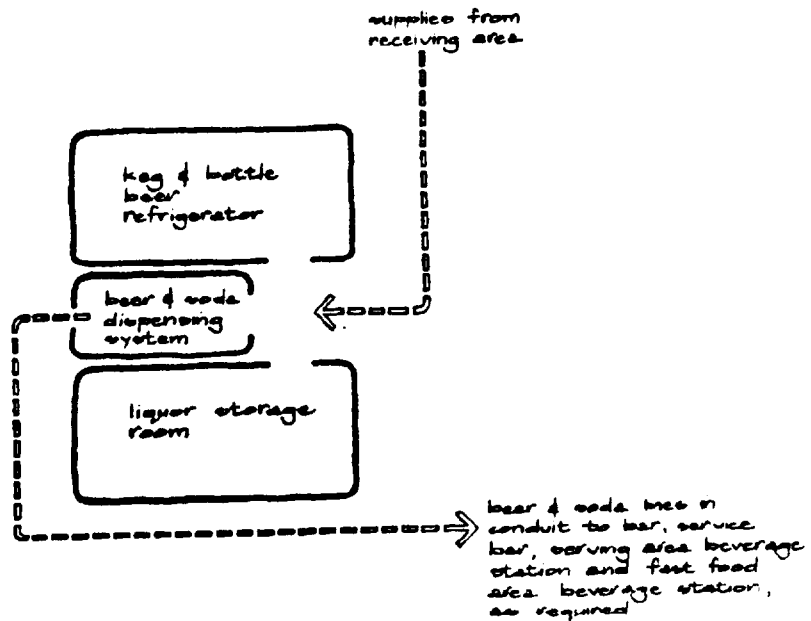 supplies from
receiving area
keg & bottle
beer
refrigerator
beer & soda
dispensing
system
liquor storage
room
beer & soda lines in
conduit to bar, service
bar, serving area beverage
station and fast food
area beverage station,
as required